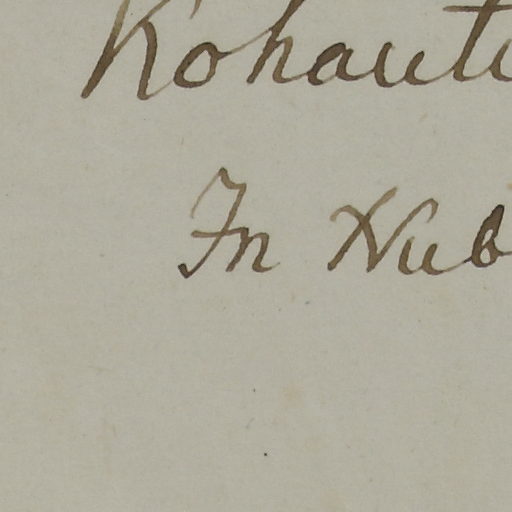 Kohauti
In Nub